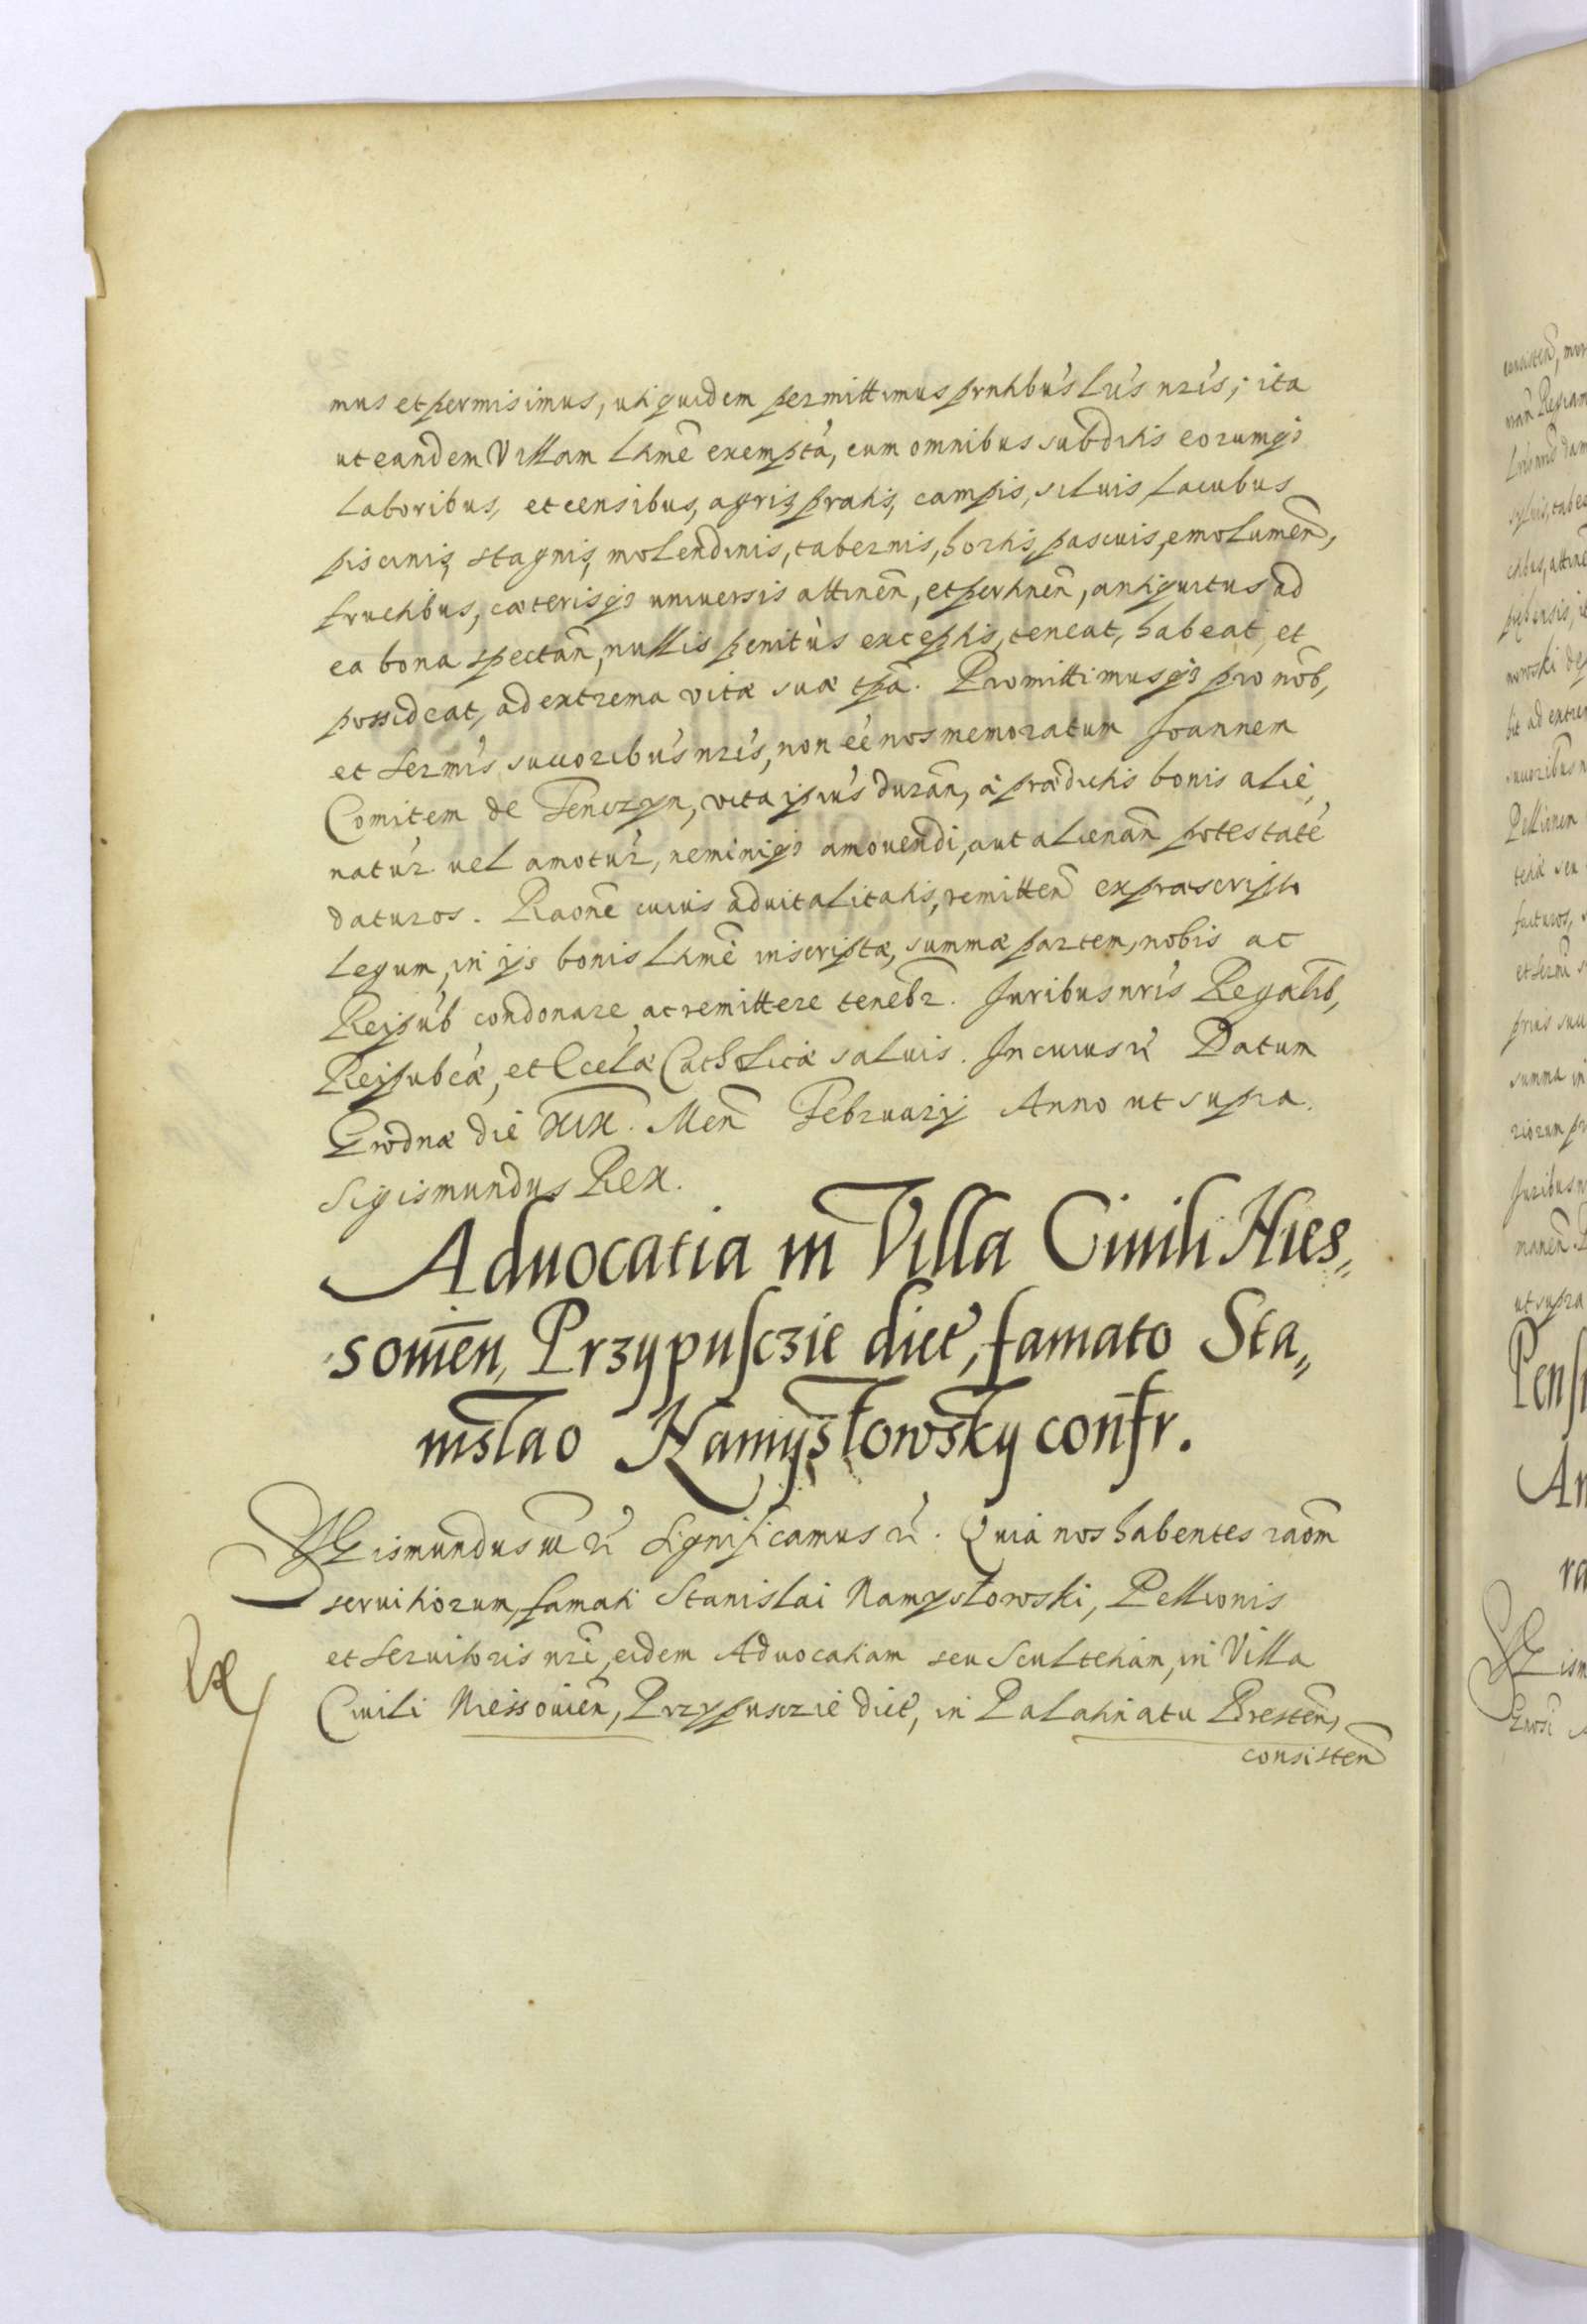 mus et permisimus, utiquidem permittimus prntibus lris nris; ita
ut eandem Villam ltime exemptã, cum omnibus subditis eorumq;
laboribus, et censibus, agris, pratis, campis, siluis, lacubus
piscinis, stagnis, molendinis, tabernis, hortis, pascuis, emolumen̄,
fructibus, cæterisq; uniuersis attinen̄, et pertinen̄, antiquitus ad
ea bona spectan̄, nullis penitùs exceptis, teneat, habeat, et
possideat, ad extrema vitæ suæ tp̄a. Promittimusq; pro nob̄,
et Sermis succoribus nris, non eé nos memoratum Joannem
Comitem de Tenczyn, vita ipius duran̄, à prædictis bonis alie,
natur. uel amotur, neminiq; amouendi, aut alienan̄ potestatē
daturos. Raone cuius aduitalitatis, remitten̄ ex præscripto
legum, in ijs bonis ltime inscriptæ, summæ partem, nobis ac
Reipub condonare, ac remittere tenebr. Juribus nris Regalib̄,
Reipubcæ, et Eccelæ Catholicæ saluis. In cuius rˀ Datum
Grodnæ die XIX. Men̄ Februarij Anno ut supra.
Sigismundus Rex.
Aduocatia in Villa Ciuili Nies„
souien̄, Przypusczie dict̄, famato Sta„
nislao Namysłowsky confr.
Sigismundus III rˀ Significamus rˀ. Quia nos habentes raom̄
seruitiorum, famati Stanislai Namysłowski, Pellionis
et Seruitoris nri, eidem Aduocatiam seu Scultetiam, in Villa
Ciuili Niessouien̄, Przypusczie dict̄, in Palatinatu Bresten̄,
consisten̄